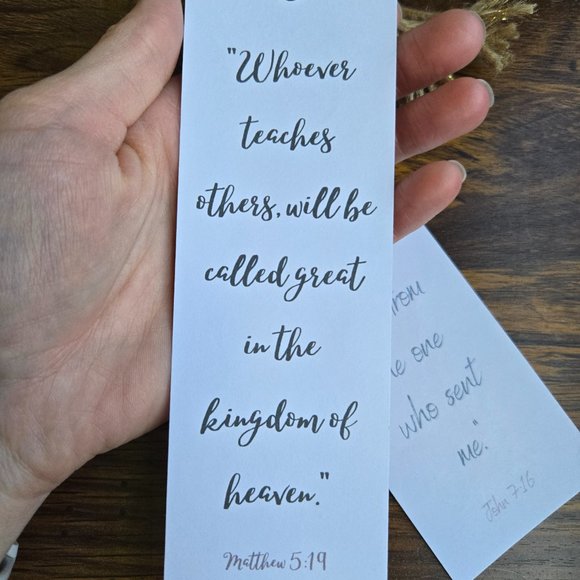 "Whoever
teaches
others, will be
called great
in the
kingdom of
heaven."
Matthew 5:19
from
one
who sent
me."
John 7-16